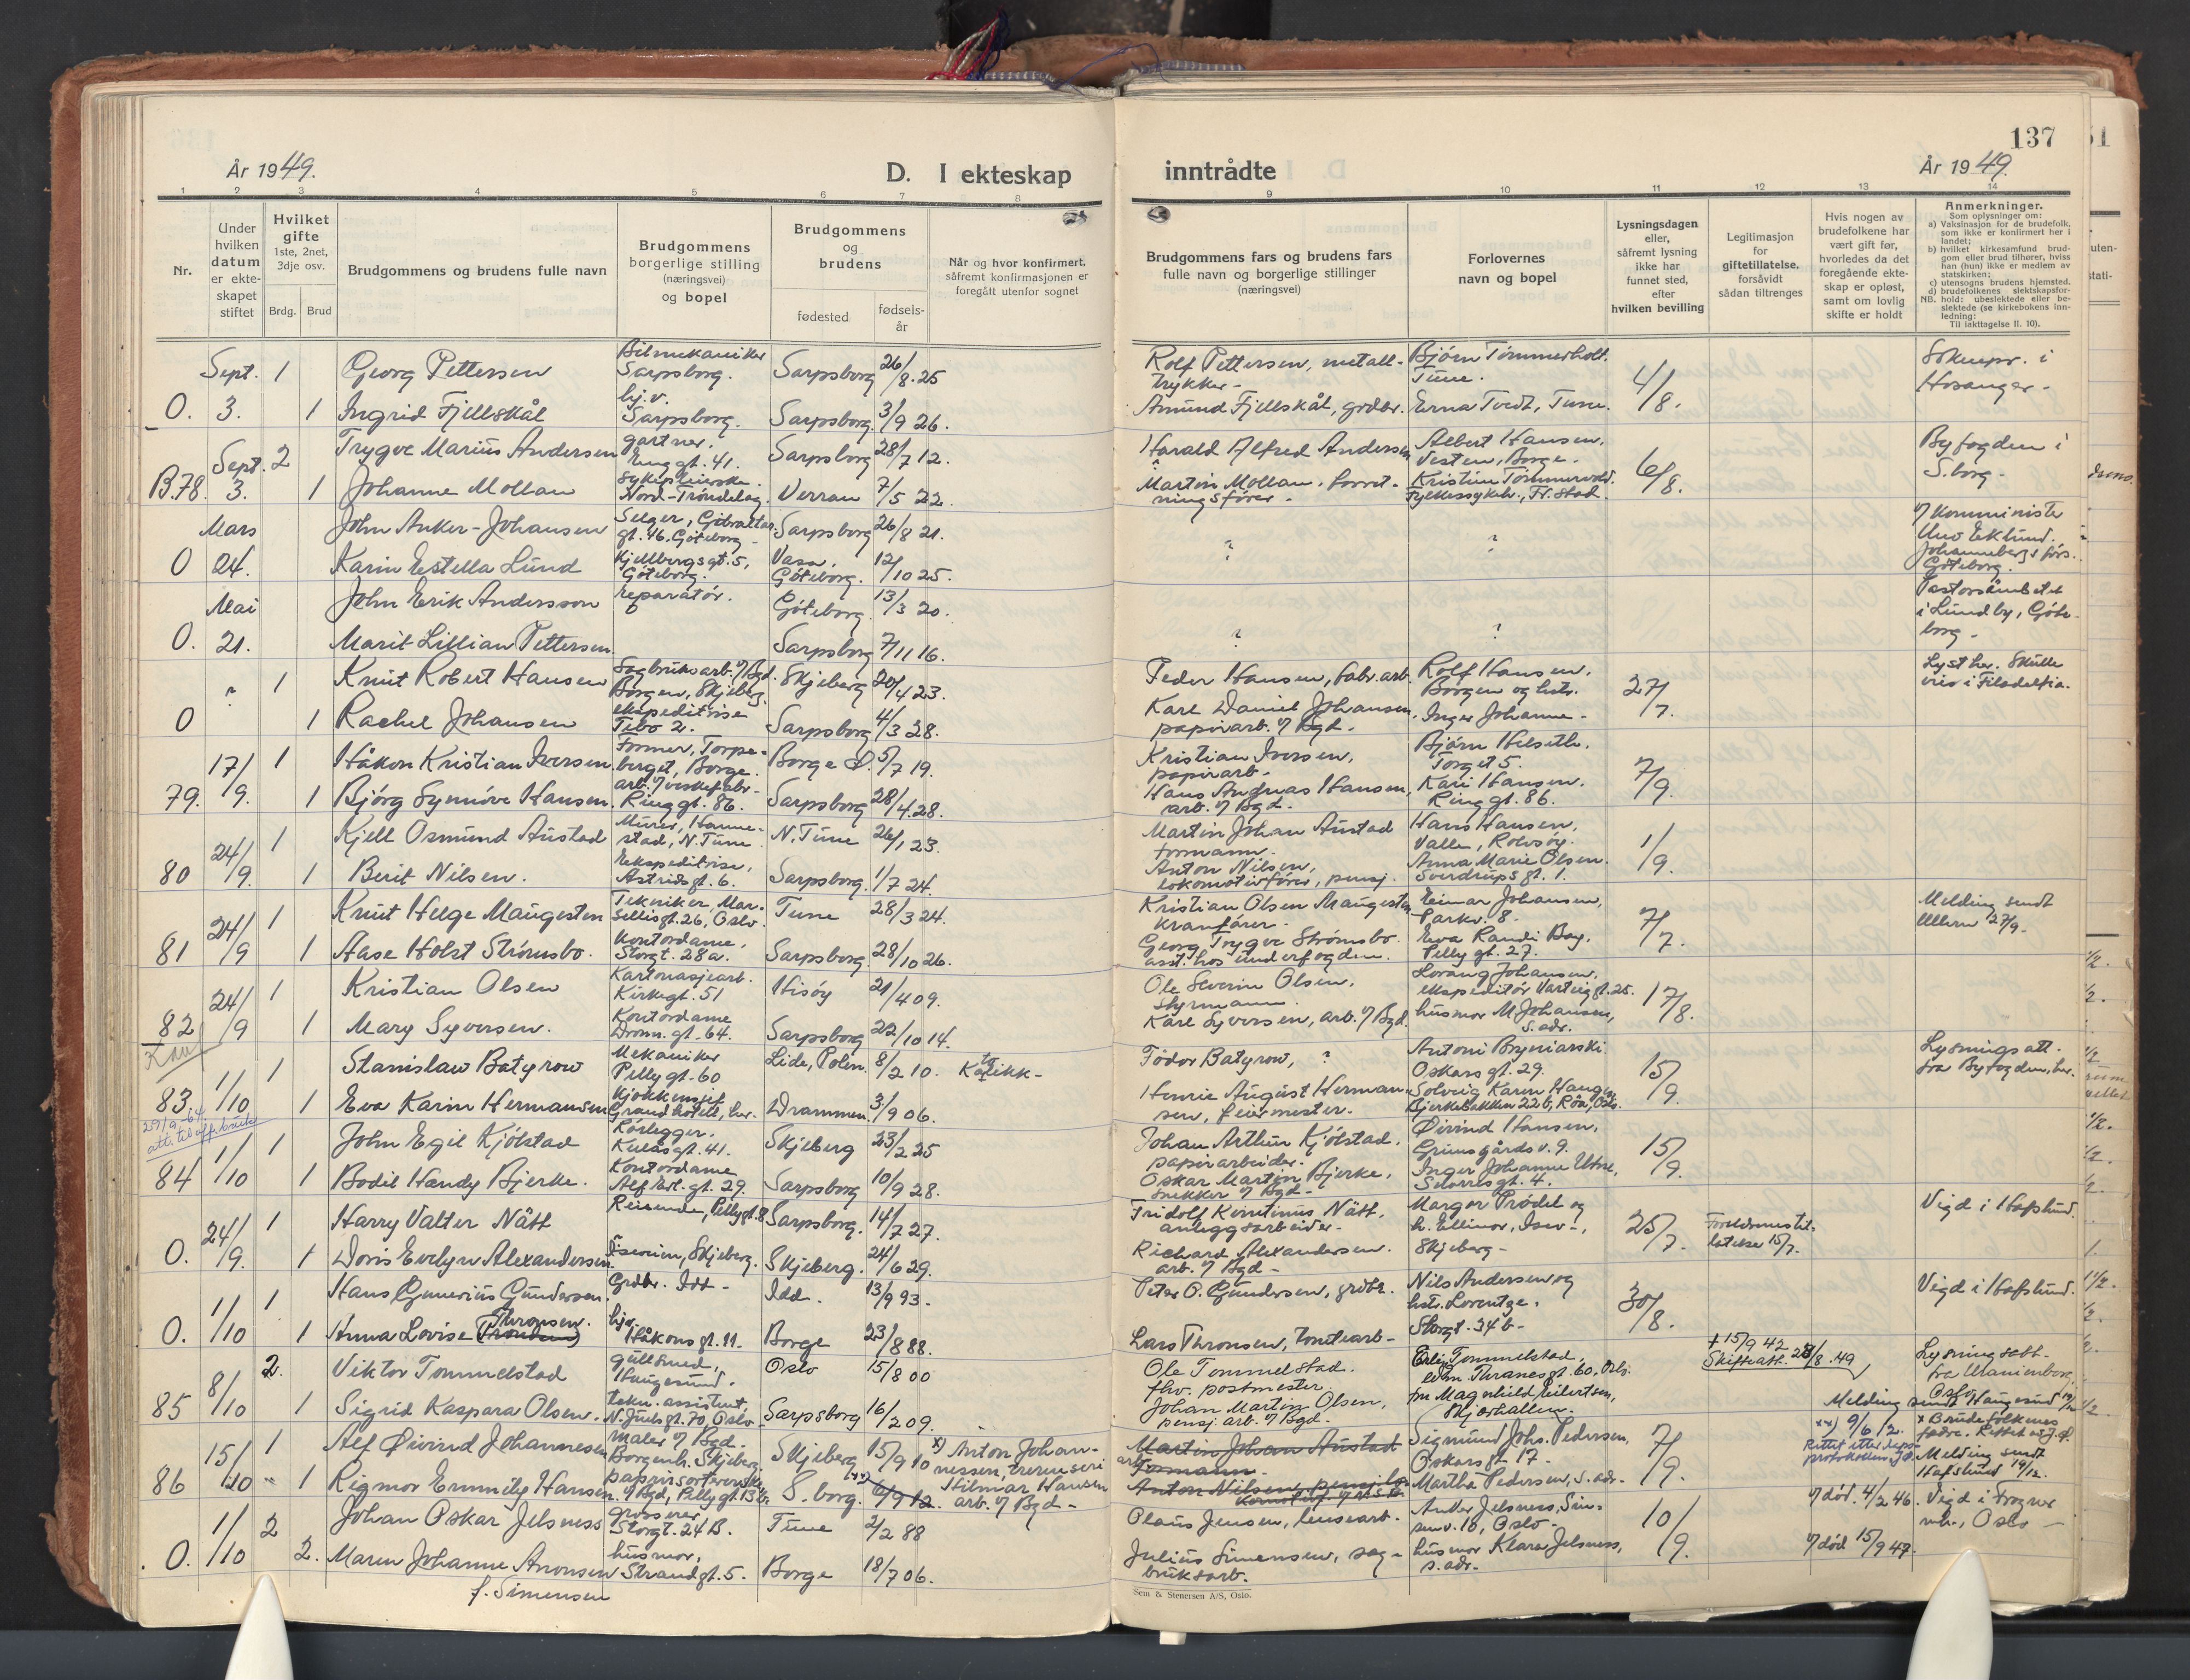 137
År 1949.
D. I ekteskap
inntrådte
År 1949.
1 2 3 4 5 6 7 8
9 10 11 12 13 14
Nr.
Under hvilken datum er ekteskapet stiftet
Hvilket gifte
1ste, 2net, 3dje osv.
Brdg. Brud
Brudgommens og brudens fulle navn
Brudgommens borgerlige stilling (næringsvei) og bopel
Brudgommens og brudens
fødested
fødselsår
Når og hvor konfirmert,
såfremt konfirmasjonen er
foregått utenfor sognet
Brudgommens fars og brudens fars
fulle navn og borgerlige stillinger
(næringsvei)
Forlovernes
navn og bopel
Lysningsdagen
eller,
såfremt lysning
ikke har
funnet sted,
efter
hvilken bevilling
Legitimasjon
for
giftetillatelse,
forsåvidt
sådan tiltrenges
Hvis nogen av
brudefolkene har
vært gift før,
hvorledes da det
foregående ekte-
skap er opløst,
samt om lovlig
skifte er holdt
Anmerkninger.
Som oplysninger om:
a) Vaksinasjon for de brudefolk, som ikke er konfirmert her i landet;
b) hvilket kirkesamfund brudgom eller brud tilhører, hviss han (hun) ikke er medlem av statskirken;
c) utensogns brudens hjemsted.
d) brudefolkenes slektskapsforhold: ubeslektede eller beslektede (se kirkebokens innledning:
NB. Til iakttagelse II. 10).
Sept. 1 Georg Pettersen Bilmekaniker Sarpsborg. Sarpsborg 26/8.25 Rolf Pettersen, metalltrykker- Bjørn Tømmerholt. Tune. 4/8. Soknepr. i Hosanger-
O. 3. 1 Ingrid Fjellskål hj.v. Sarpsborg. Sarpsborg. 3/9 26. Amund Fjellskål, grdbr. Erna Tvedt, Tune.
Sept. 2 Trygve Marius Andersen gartner, Enggt. 41. Sarpsborg 28/7 12. Harald Alfred Andersen Albert Hansen, Vesten, Borge. 6/8. Byfogden i S.borg-
B.78. 3. 1 Johanne Mollan Sykepleierske Nord-Trøndelag. Verran 7/5 22. Martin Mollan, forretningsfører- Kristine Tømmervold. Fylkessykeh., Fr.stad
Mars John Anker-Johansen Selger, Gibraltargt. 46. Göteborg- Sarpsborg 26/8 21. ? ? v/ Komminister Uno Eklund. Johannebergs förs. Göteborg.
O 24. Karin Estella Lund Kjellbergsgt. 5, Göteborg. Vasa, Göteborg. 12/10 25.
Mai John Erik Andersson reparatør. Göteborg 13/3 20. ? ? Pastorsämbetet i Lundby, Göteborg-
O. 21. Marit Lillian Pettersen. Sarpsborg 7/11 16.
? 1 Knut Robert Hansen Sagbruksarb. v/ Bgd. Borgen, Skjeberg. Skjeberg 20/4 23. Peder Hansen, fabr.arb. Rolf Hansen, Borgen og hstr. 27/7. Lyst her. Skulle vies i Filadelfia.
O 1 Rachel Johansen ekspeditrise Tibo 2. Sarpsborg 4/3 28. Karl Daniel Johansen, papirarb. v/ Bgd. Inger Johanne-
17/9. 1 Håkon Kristian Iversen. Former, Torpeberget, Borge. Borge Ø. 5/7 19. Kristian Iversen, papirarb- Bjørn Helseth. Torget 5. 7/9.
79. 1 Bjørg Synnøve Hansen. Ringgt. 86. Sarpsborg 28/4.28. Hans Andreas Hansen, arb. v/ Bgd. Kari Hansen, Ringgt. 86.
24/9. 1 Kjell Osmund Austad Murer, Hannestad, N.Tune. N.Tune 26/1 23. Martin Johan Austad formann. Hans Hansen, Valle, Rolvsøy. 1/9.
80 1 Berit Nilsen. Ekspeditrise, Astridsgt. 6. Sarpsborg. 1/7 24. Anton Nilsen, lokomotivfører, pensj. Anna Marie Olsen. Sverdrupsgt. 1.
24/9 1 Knut Helge Maugesten Tekniker, Marsellisgt. 26, Oslo. Tune 28/3 24. Kristian Olsen Maugesten Kranfører. Einar Johansen, Parkv. 8. 7/7. Melding sendt Ullern 27/9.
81 1 Aase Holst Strømsbo. Kontordame, Storgt. 28a. Sarpsborg 28/10 26. Georg Trygve Strømsbo. asst. hos underfogden. Eva Randi Bay. Pellygt. 27.
24/9 1 Kristian Olsen Kartonasjearb. Kirkegt. 51 Hisøy 21/4 09. Ole Severin Olsen, Styrmann. Lorang Johansen, ekspeditør Varteiggt. 25. 17/8.
82 1 Mary Syversen. Kontordame Dronn.gt. 64. Sarpsborg 22/10 14. Kåre Syversen, arb. v/ Bgd. husmor M Johansen, s.adr.
1/10 1 Stanislaw Batyrow Mekaniker Pellygt-60 Lide, Polen. 8/2 10. Katolikk- Födor Batyrow, ? Antoni Bryniarski Oskarsgt. 29. 15/9. Lysningsatt. fra Byfogden, her.
83 1 Eva Karin Hermansen Kjøkkensjef Grand hotell, her. Drammen 3/9 06. Henrik August Hermansen, feiermester. Solveig Karen Haugen Bjerkebakken 22 b, Røa, Oslo.
1/10 1 John Egil Kjølstad Rørlegger, Kulåsgt. 41. Skjeberg 23/2 25 Johan Arthur Kjølstad, papirarbeider. Øivind Hansen, Grimsgårdsv. 9. 15/9.
84 1 Bodil Handy Bjerke. Kontordame Alf Erl. gt. 29. Sarpsborg 10/9 28. Oskar Martin Bjerke, snekker v/ Bgd- Inger Johanne Utne, Snorresgt. 4.
24/9. 1 Harry Valter Nätt Reisende, Pellygt. 8 Sarpsborg. 14/7 27. Fridolf Kvintinus Nätt, anleggsarbeider- Margor Prødel og h. Ellinor, Isev-, Skjeberg- 25/7. Foreldrenes tillatelse 15/7. Vigd i Hafslund.
O. 1 Doris Evelyn Alexandersen. Skjeberg. Skjeberg. 24/6 29. Richard Alexandersen. arb. v/ Bgd-
1/10 1 Hans Gunerius Gundersen. Grdbr. Idd- Idd. 13/9 93- Peter O. Gundersen, grdbr. Nils Andersen og hstr. Lorentze. Storgt. 34 b- 30/8. Vigd i Hafslund.
O. 1 Anna Lovise Thronsen. hj.v. Håkonsgt. 11. Borge 23/8 88. Lars Thronsen, tomtearb-
8/10 2. Viktor Tommelstad gullsmed, Haugesund. Oslo 15/8 00 Ole Tommelstad. fhv. postmester. Erling Tommelstad, Edm. Thranesgt. 60, Oslo. + 15/9 42 Skifteatt. 23/8.49 Lysningsatt- fra Uranienborg, Oslo
85 1 Sigrid Kaspara Olsen. tekn. assistent, N. Juelsgt. 70, Oslo Sarpsborg 16/2 09. Johan Martin Olsen, pensj. arb. v/ Bgd. fru Magnhild Eilertsen, Skjærhallen. Melding sendt Haugesund
15/10 1 Alf Øivind Johannesen maler v/ Bgd. Borgenh. Skjeberg. Skjeberg 15/9 10 x) Anton Johannessen, Martin Johan Austad Formann. Sigmund Johs. Pedersen, Oskarsgt. 17. 7/9. xx) 9/6 12. x Brudefolkenes fedre. Rettet
86 1 Rigmor Emmily Hansen. v/ Bgd, Pellygt. 13 b. S.borg. 6/9 12. Hilmar Hansen arb. v/ Bgd- Anton Nilsen, pensj. Martha Pedersen, s. adr. Melding sendt Hafslund 19/12.
1/10 2 Johan Oskar Jelsness grosserer Storgt. 24 B. Tune 2/2 88 Olaus Jensen, lensearb. Anker Jelsness, Sinsenv. 10, Oslo- 10/9. v/ død. 4/2 46. Vigd i Frogner Oslo-
O. 2. Maren Johanne Aronsen f. Simensen husmor, Strandgt. 5. Borge 18/7 06. Julius Simensen, sagbruksarb. husmor Klara Jelsness, s. adr. v/ død 15/9 47.
Sem & Stenersen A/S, Oslo.